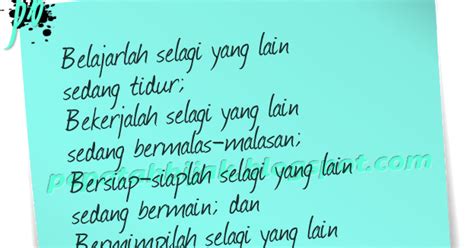 Belajarlah selagi yang lain
sedang tidur;
Bekerjalah selagi yang lain
sedang bermalas-malasan;
Bersiap-siaplah selagi yang lain
sedang bermain; dan
Bermimpilah selagi yang lain